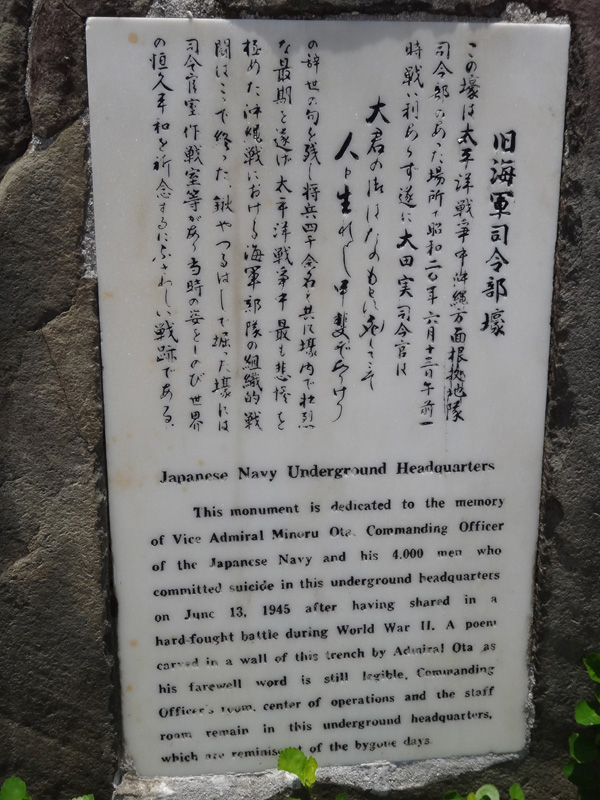 旧海軍司令部壕
この壕は太平洋戦争中沖縄方面根拠地隊
司令部のあった場所で昭和二〇年六月十三日午前一
時戦い利あらず遂に大田実司令官は
大君の御はたのもとに死してこそ
人と生れし甲斐でありけり
の辞世の句を残し将兵四千余名と共に壕内で壮烈
な最期を遂げ太平洋戦争中最も悲惨を
極めた沖縄戦における海軍部隊の組織的戦
闘はここで終った、鍬やつるはしで掘った壕には
司令官室作戦室等があり当時の姿をしのび世界
の恒久平和を祈念するにふさわしい戦跡である。
Japanese Navy Underground Headquarters
This monument is dedicated to the memory
of Vice Admiral Minoru Ota, Commanding Officer
of the Japanese Navy and his 4.000 men who
committed suicide in this underground headquarters
on June 13, 1945 after having shared in a
hard-fought battle during World War II. A poem
carved in a wall of this trench by Admiral Ota as
his farewell word is still legible. Commanding
Officer's room, center of operations and the staff
room remain in this underground headquarters,
which are reminiscent of the bygone days.